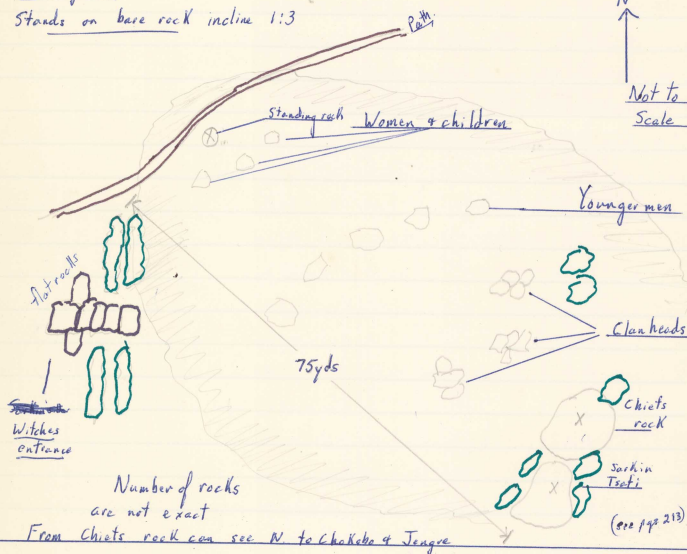 Stands on bare rock incline 1:3
Path.
N
Not to
Scale
Standing rock
Women & children
Younger men
flat rocks
Clan heads
75yds
Chiefs
rock
Witches
entrance
Sarkin
Tsafi
Number of rocks
are not exact
(see pgs 213)
From Chiefs rock can see N. to Chokobo & Jengre